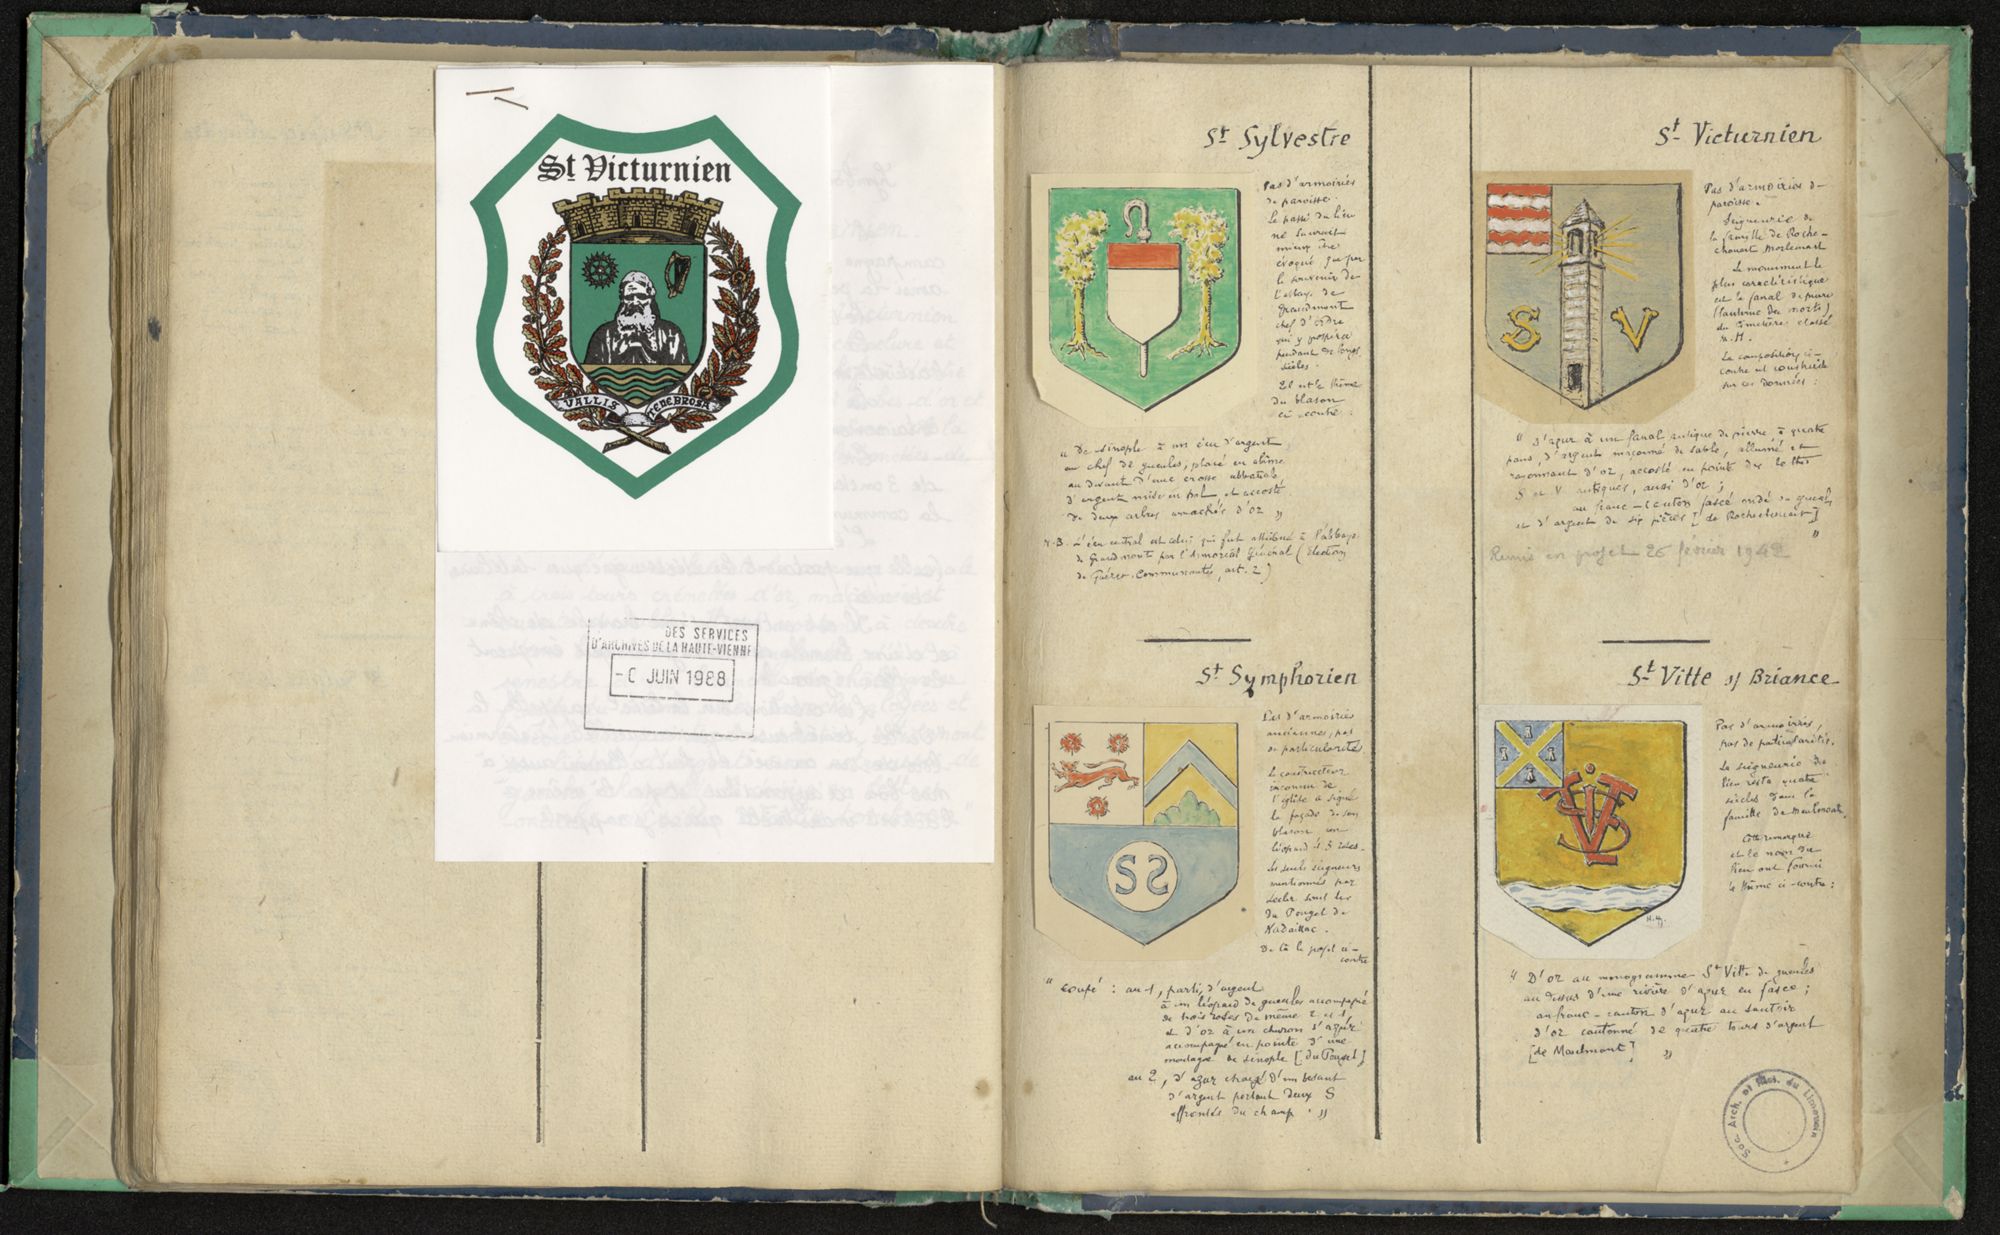 St Victurnien
VALLIS TENEBROSA
DES SERVICES
D'ARCHIVES DE LA HAUTE-VIENNE
JUIN 1988
St Sylvestre
Pas d'armoiries
de paroisse.
Le passé du lieu
ne saurait
mieux être
évoqué que par
le souvenir de
l'abbaye de
Grandmont
chef d'ordre
qui y prospéra
pendant de longs
siècles.
Il est le thème
du blason
ci-contre :
" De sinople à un écu d'argent
au chef de gueules, placé en abîme
au devant d'une crosse abbatiale
d'argent mise en pal, et accosté
de deux arbres arrachés d'or "
N.B. L'écu central est celui qui fut attribué à l'abbaye
de Grandmont par l'Armorial Général (Election
de Guéret. Communautés, art. 2)
St Symphorien
Pas d'armoiries
anciennes, pas
de particularités.
Le constructeur
inconnu de
l'église a signé
la façade de son
blason un
léopard et 3 roses.
Les seuls seigneurs
mentionnés par
Lecler sont les
du Pouget de
Nadaillac.
De là le projet ci-
contre
" Coupé : au 1, parti, d'argent
à un léopard de gueules accompagné
de trois roses de même 2 et 1,
et d'or à un chevron d'azur
accompagné en pointe d'une
montagne de sinople [du Pouget]
au 2, d'azur chargé d'un besant
d'argent portant deux S
affrontés du champ. "
SS
St Victurnien
Pas d'armoiries de
paroisse.
Seigneurie de
la famille de Roche-
chouart Mortemart
Le monument le
plus caractéristique
est le fanal de pierre
(lanterne des morts)
du cimetière classé
M.H.
La composition ci-
contre est construite
sur ces données :
S V
" D'azur à un fanal antique de pierre à quatre
pans, d'argent maçonné de sable, allumé et
rayonnant d'or, accosté en pointe des lettres
S et V antiques, aussi d'or ;
au franc-canton fascé ondé de gueules
et d'argent de six pièces [de Rochechouart] "
Remis en projet 26 février 1942
St Vitte s/ Briance
Pas d'armoiries,
pas de particularités.
La seigneurie du
lieu resta quatre
siècles dans la
famille de Maulmont.
Cette remarque
et le nom du
lieu ont fourni
le thème ci-contre :
H.H.
" D'or au monogramme St Vitte de gueules
au dessus d'une rivière d'azur en fasce ;
au franc-canton d'azur au sautoir
d'or cantonné de quatre tours d'argent
[de Maulmont] "
Soc. Arch. et Hist. du Limousin